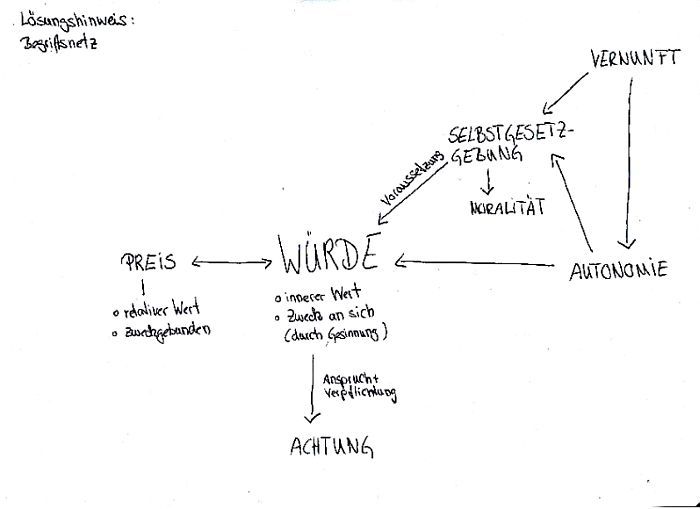 Lösungshinweis:
Begriffsnetz
VERNUNFT
SELBSTGESETZ-
GEBUNG
Voraussetzung
MORALITÄT
PREIS
WÜRDE
AUTONOMIE
o relativer Wert
o zweckgebunden
o innerer Wert
o Zweck an sich
(durch Gesinnung)
Anspruch +
Verpflichtung
ACHTUNG